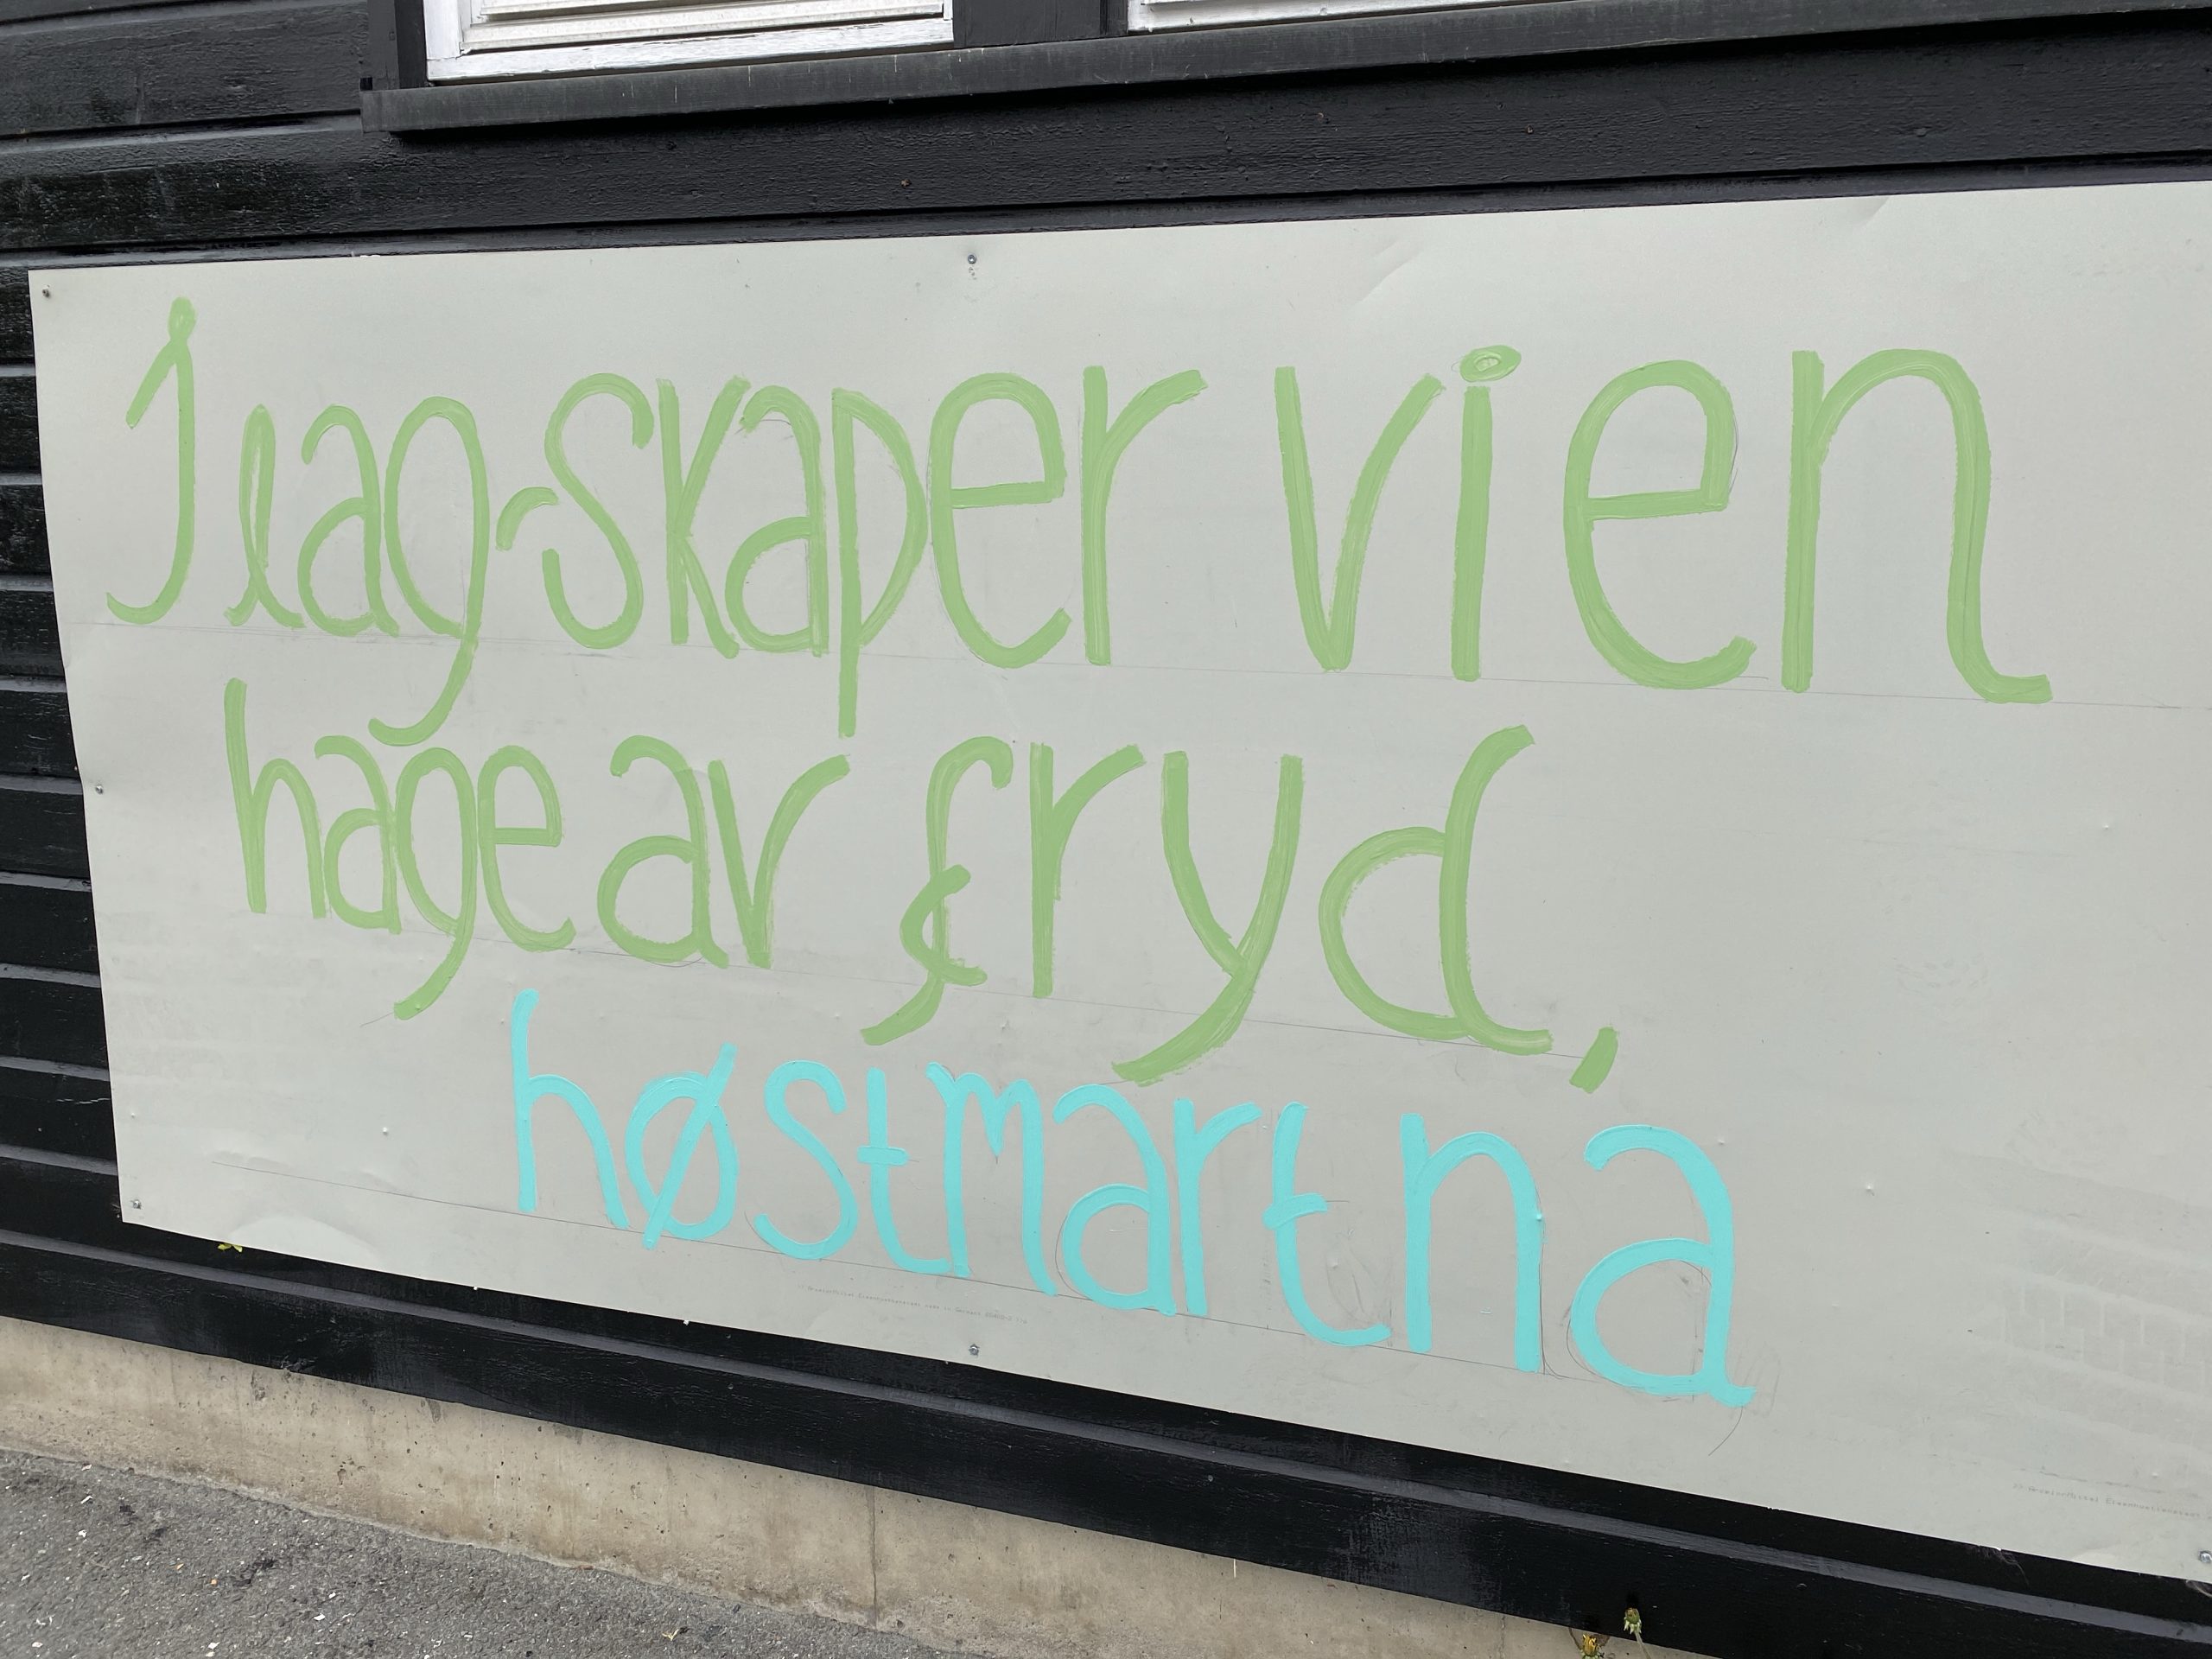 I lag-skaper vi en
hage av fryd,
høstmart na